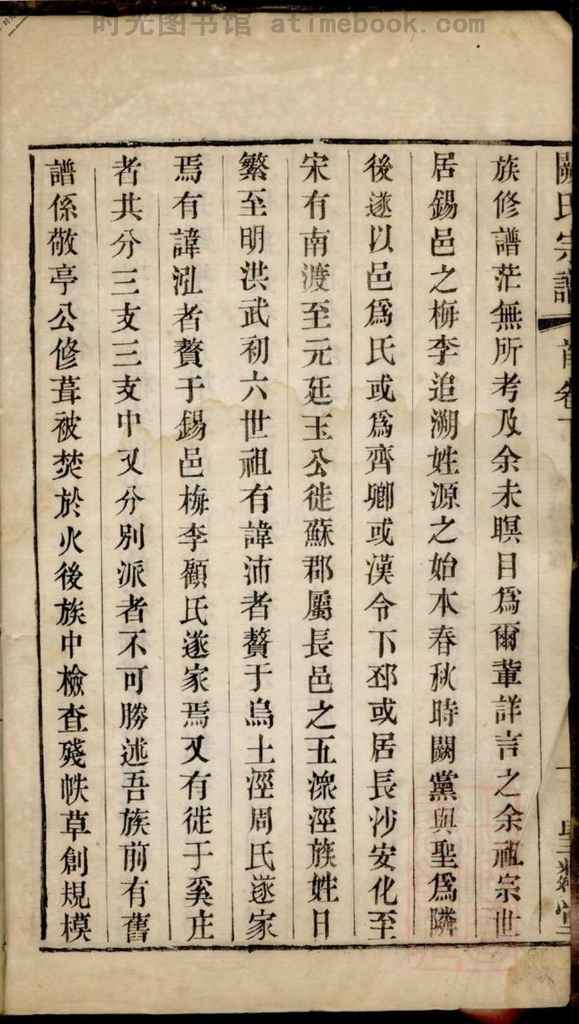 时光图书馆 atimebook.com
闕氏宗譜 首卷
族修譜茫無所考及余未瞑目爲爾輩詳言之余祖宗世
居錫邑之梅李追溯姓源之始本春秋時闕黨與聖爲隣
後遂以邑爲氏或爲齊卿或漢令下邳或居長沙安化至
宋有南渡至元廷玉公徙蘇郡屬長邑之五潨涇族姓日
繁至明洪武初六世祖有諱沛者贅于烏土涇周氏遂家
焉有諱泓者贅于錫邑梅李顧氏遂家焉又有徙于奚庄
者共分三支三支中又分別派者不可勝述吾族前有舊
譜係敬亭公修葺被焚於火後族中檢查殘帙草創規模